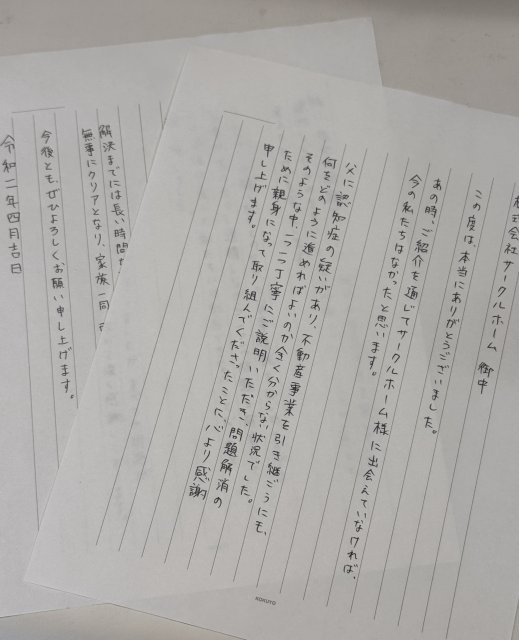 株式会社サークルホーム 御中
この度は、本当にありがとうございました。
あの時、ご紹介を通じてサークルホーム様に出会えていなければ、
今の私たちはなかったと思います。
父に認知症の疑いがあり、不動産事業を引き継ごうにも、
何をどのように進めればよいのか全く分からない状況でした。
そのような中、一つ一つ丁寧にご説明いただき、問題解消の
ために親身になって取り組んでくださったことに心より感謝
申し上げます。
KOKUYO
解決までには長い時間
無事にクリアとなり、家族一同
今後とも、ぜひよろしくお願い申し上げます。
令和二年四月吉日